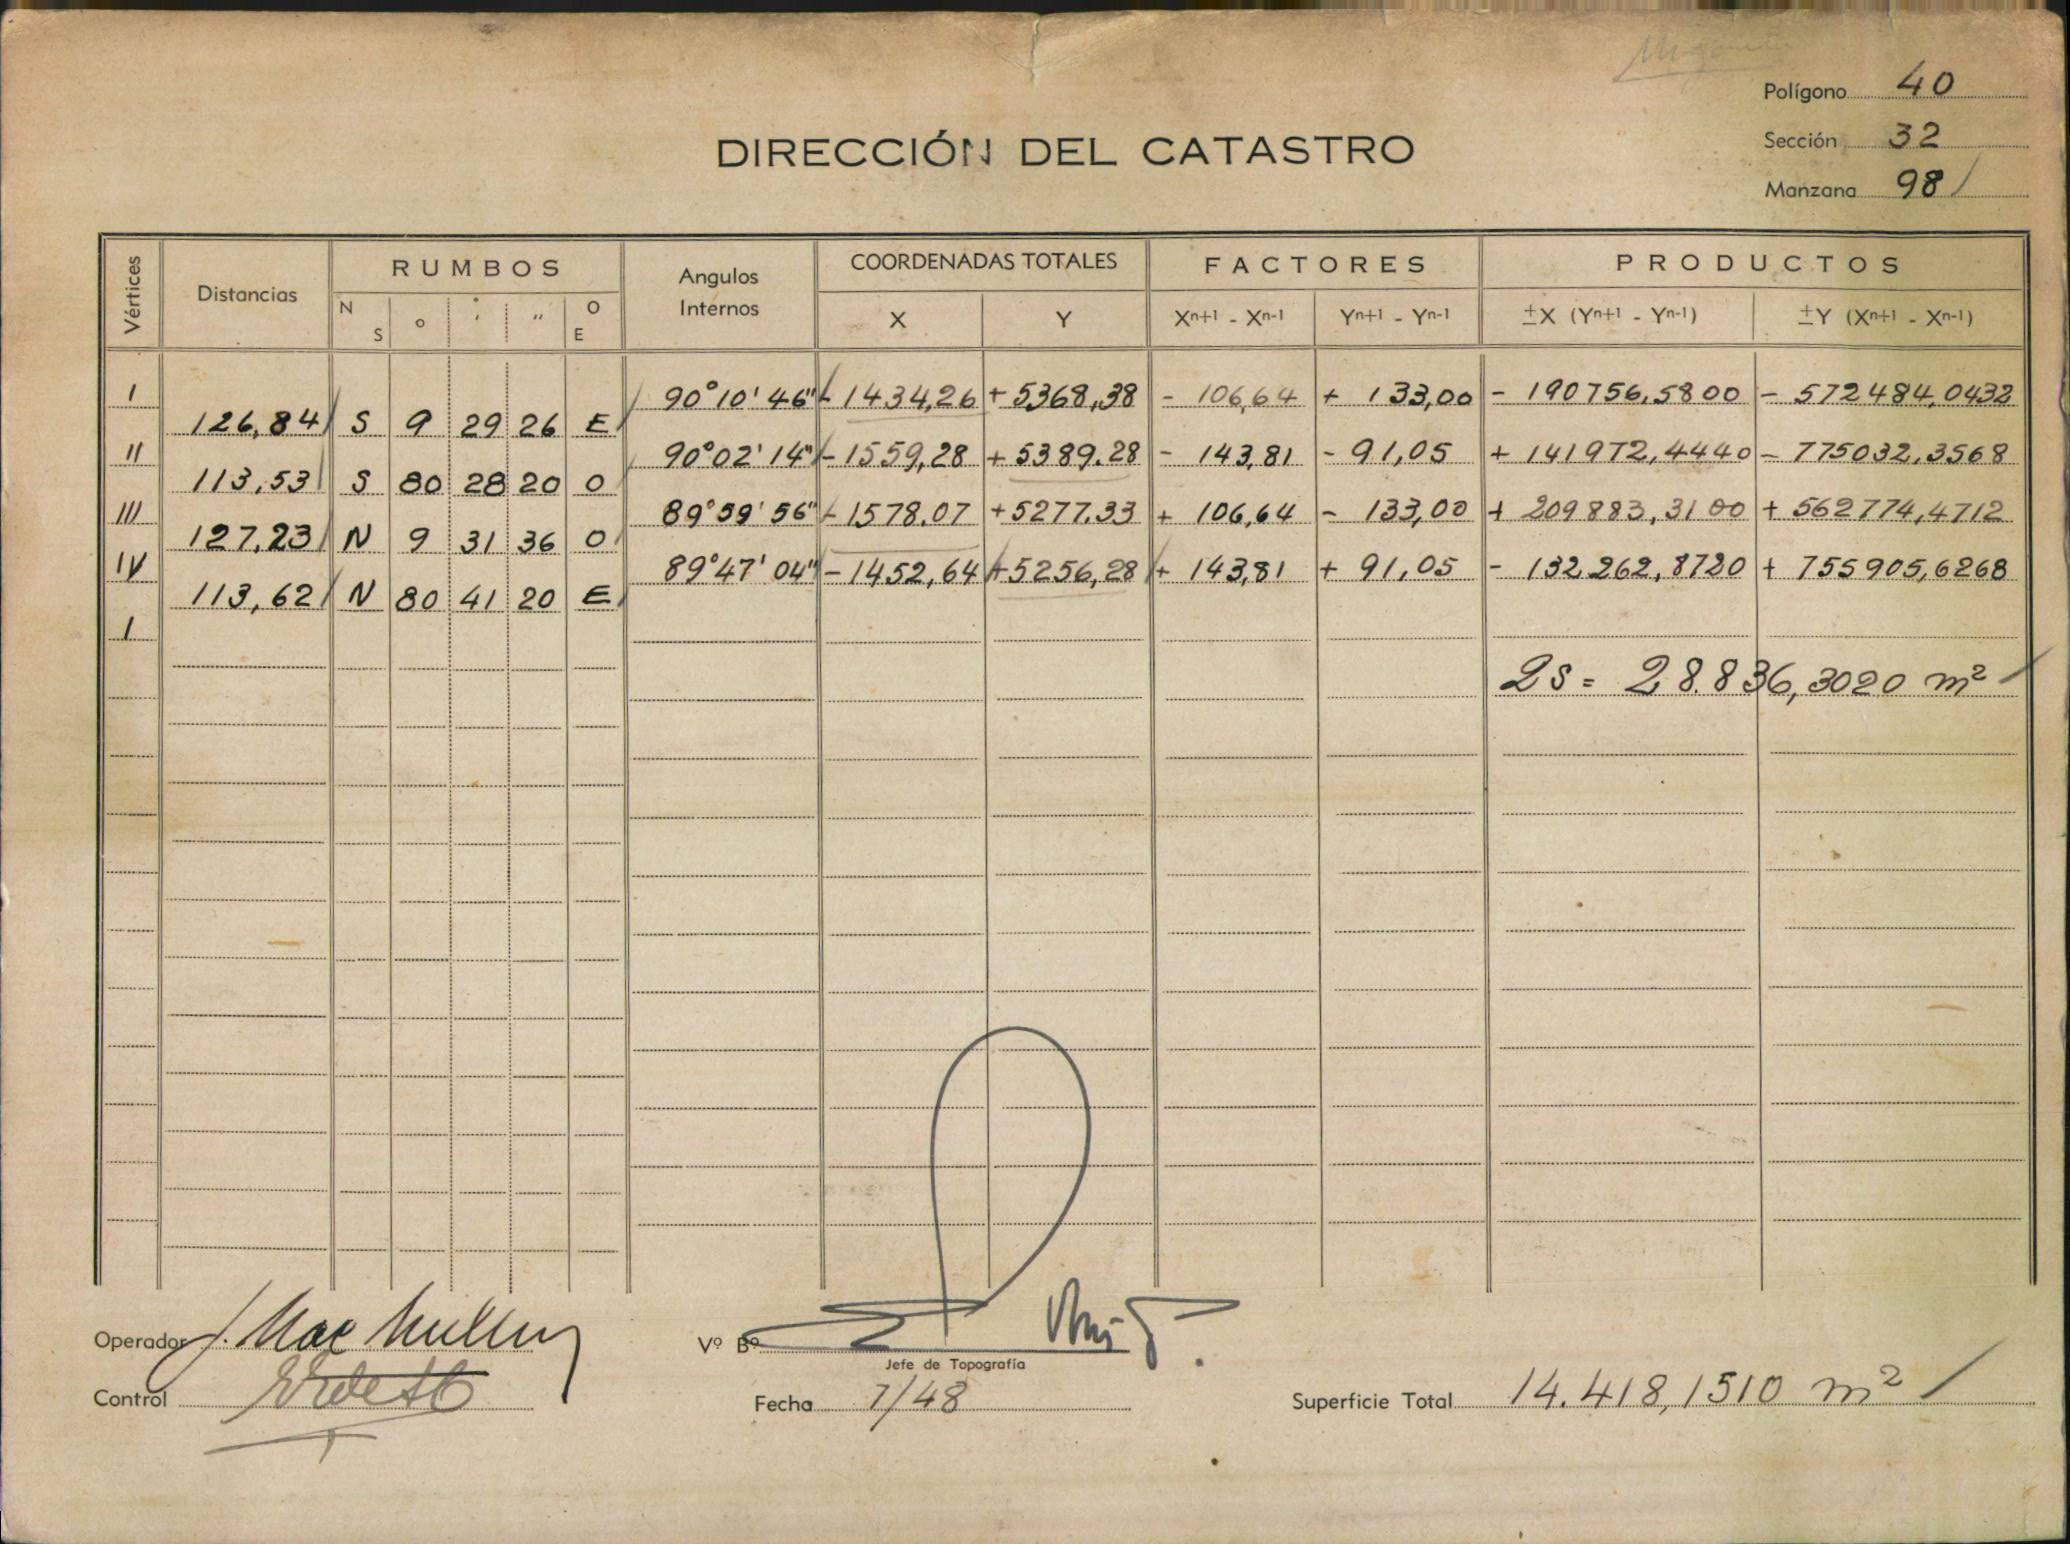 Polígono 40
DIRECCIÓN DEL CATASTRO
Sección 32
Manzana 98
Vértices Distancias RUMBOS Angulos Internos COORDENADAS TOTALES FACTORES PRODUCTOS
N S o ' " O E X Y Xn+1 - Xn-1 Yn+1 - Yn-1 ±X (Yn+1 - Yn-1) ±Y (Xn+1 - Xn-1)
I 90°10'46" - 1434,26 + 5368,38 - 106,64 + 133,00 - 190756,5800 - 572484,0432
126,84 S 9 29 26 E
II 90°02'14" - 1559,28 + 5389.28 - 143,81 - 91,05 + 141972,4440 - 775032,3568
113,53 S 80 28 20 O
III 89°59'56" - 1578.07 + 5277.33 + 106,64 - 133,00 + 209883,3100 + 562774,4712
127,23 N 9 31 36 O
IV 89°47'04" - 1452,64 + 5256,28 + 143,81 + 91,05 - 132262,8720 + 755905,6268
113,62 N 80 41 20 E
I
2S = 28.836,3020 m²
Operador J. Mac Mullen
Vº Bº
Jefe de Topografía
Control
Fecha 7/48
Superficie Total 14.418,1510 m²